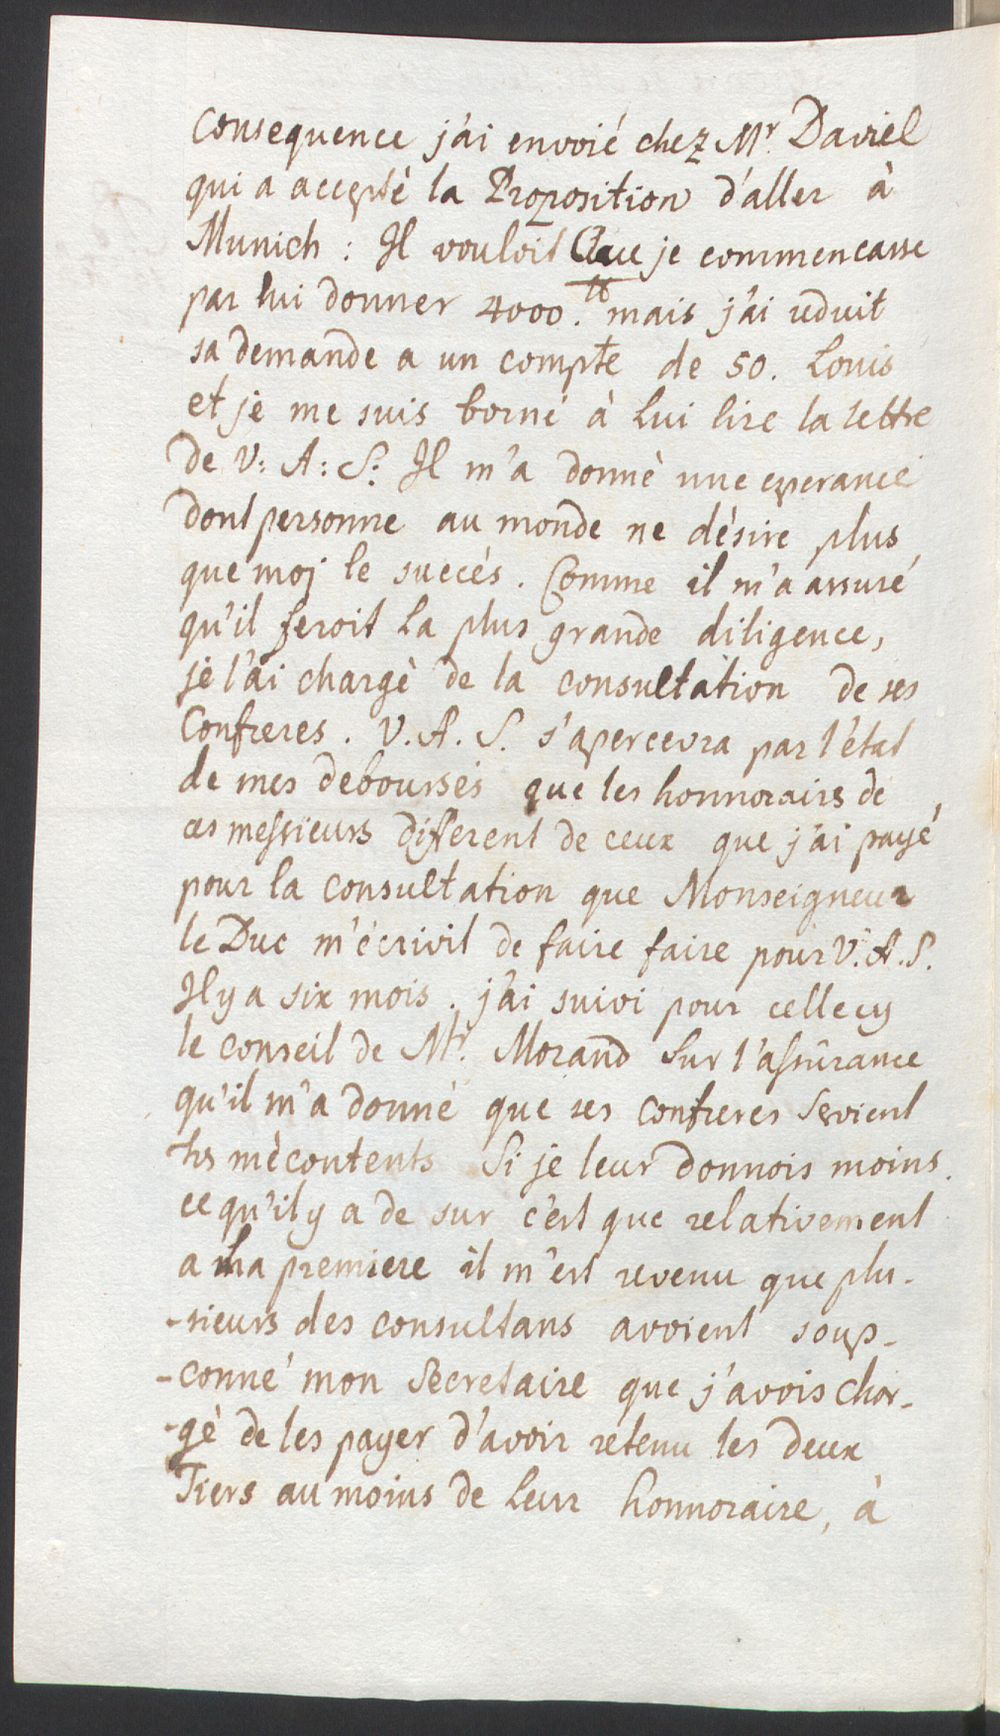 consequence j'ai envoié chez Mr. Daviel
qui a accepté la Proposition d'aller à
Munich : Il vouloit Que je commencasse
par lui donner 4000.tt mais j'ai reduit
sa demande a un compte de 50. Louis
et je me suis borné à lui lire la lettre
de V: A: S: Il m'a donné une esperance
dont personne au monde ne désire plus
que moj le succés. Comme il m'a assuré
qu'il feroit la plus grande diligence,
je l'ai chargè de la consultation de ses
Confreres. V. A. S. s'apercevra par l'état
de mes deboursés que les honnorairs de
ces messieurs different de ceux que j'ai payé
pour la consultation que Monseigneur
le Duc m'écrivit de faire faire pour V. A. S.
Il y a six mois. j'ai suivi pour celle cy
le conseil de Mr. Morand sur l'assûrance
qu'il m'a donné que ses confreres seroient
trs mècontents Si je leur donnois moins.
ce qu'il y a de sur c'est que relativement
a la premiere il m'est revenu que plu-
-sieurs des consultans avoient soup-
-conné mon Secretaire que j'avois char-
-gè de les payer d'avoir retenu les deux
Tiers au moins de leur honnoraire, à